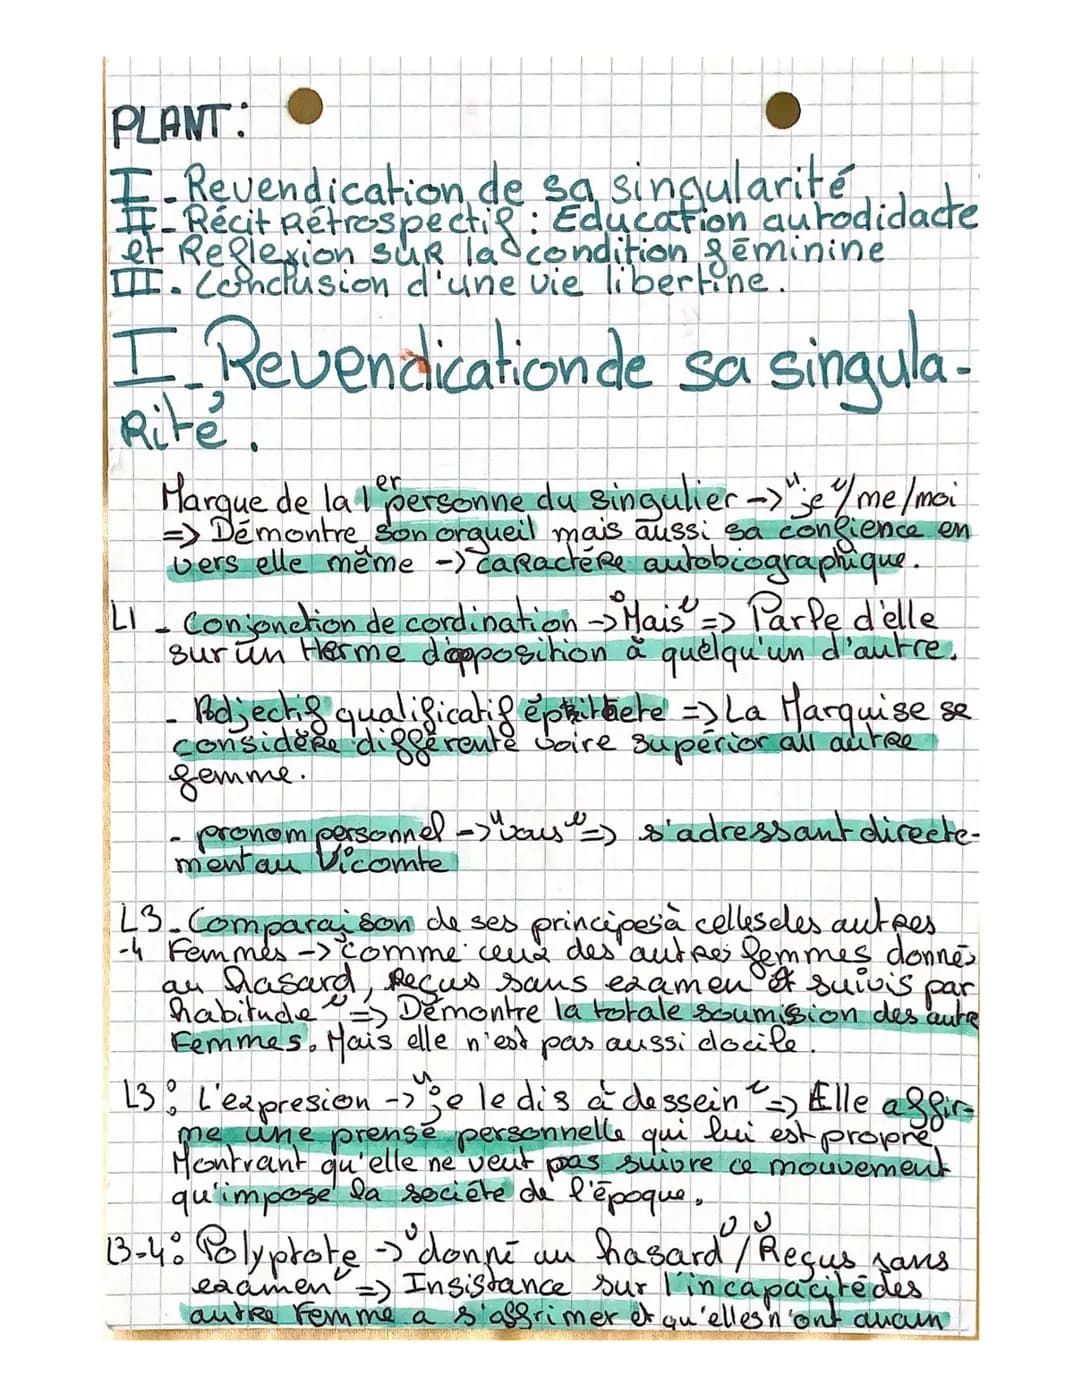 PLANT:
I - Revendication de sa singularité
II - Récit Rétrospectif : Education autodidacte
et Reflexion sur la condition féminine
III. Conclusion d'une vie libertine.
I - Revendication de sa singula-
Rité.
Marque de la 1er personne du singulier -> "je"/me/moi
=> Démontre son orgueil mais aussi sa confience en
vers elle même -> caractére autobiographique.
L1 - Conjonction de cordination -> "Mais" => Parle d'elle
sur un therme d'opposition à quelqu'un d'autre.
- Adjectif qualificatif épithete => La Marquise se
considère différente voire supérior au autre
femme.
- pronom personnel -> "vous" => s'adressant directe-
ment au Vicomte
L3 - Comparaison de ses principes à celles des autres
-4 Femmes -> "comme ceux des autres femmes donnés
au hasard, Reçus sans examen et suivis par
habitude" => Démontre la totale soumision des autre
Femmes. Mais elle n'est pas aussi docile.
L3 : L'expresion -> "je le dis à dessein" => Elle affir-
me une prensé personnelle qui lui est propre,
Montrant qu'elle ne veut pas suivre ce mouvement
qu'impose la société de l'époque.
L3-4: Polyptote -> "donné au hasard"/"Reçus sans
examen" => Insistance sur l'incapacité des
autre Femme a s'affrimer et qu'elles n'ont aucun